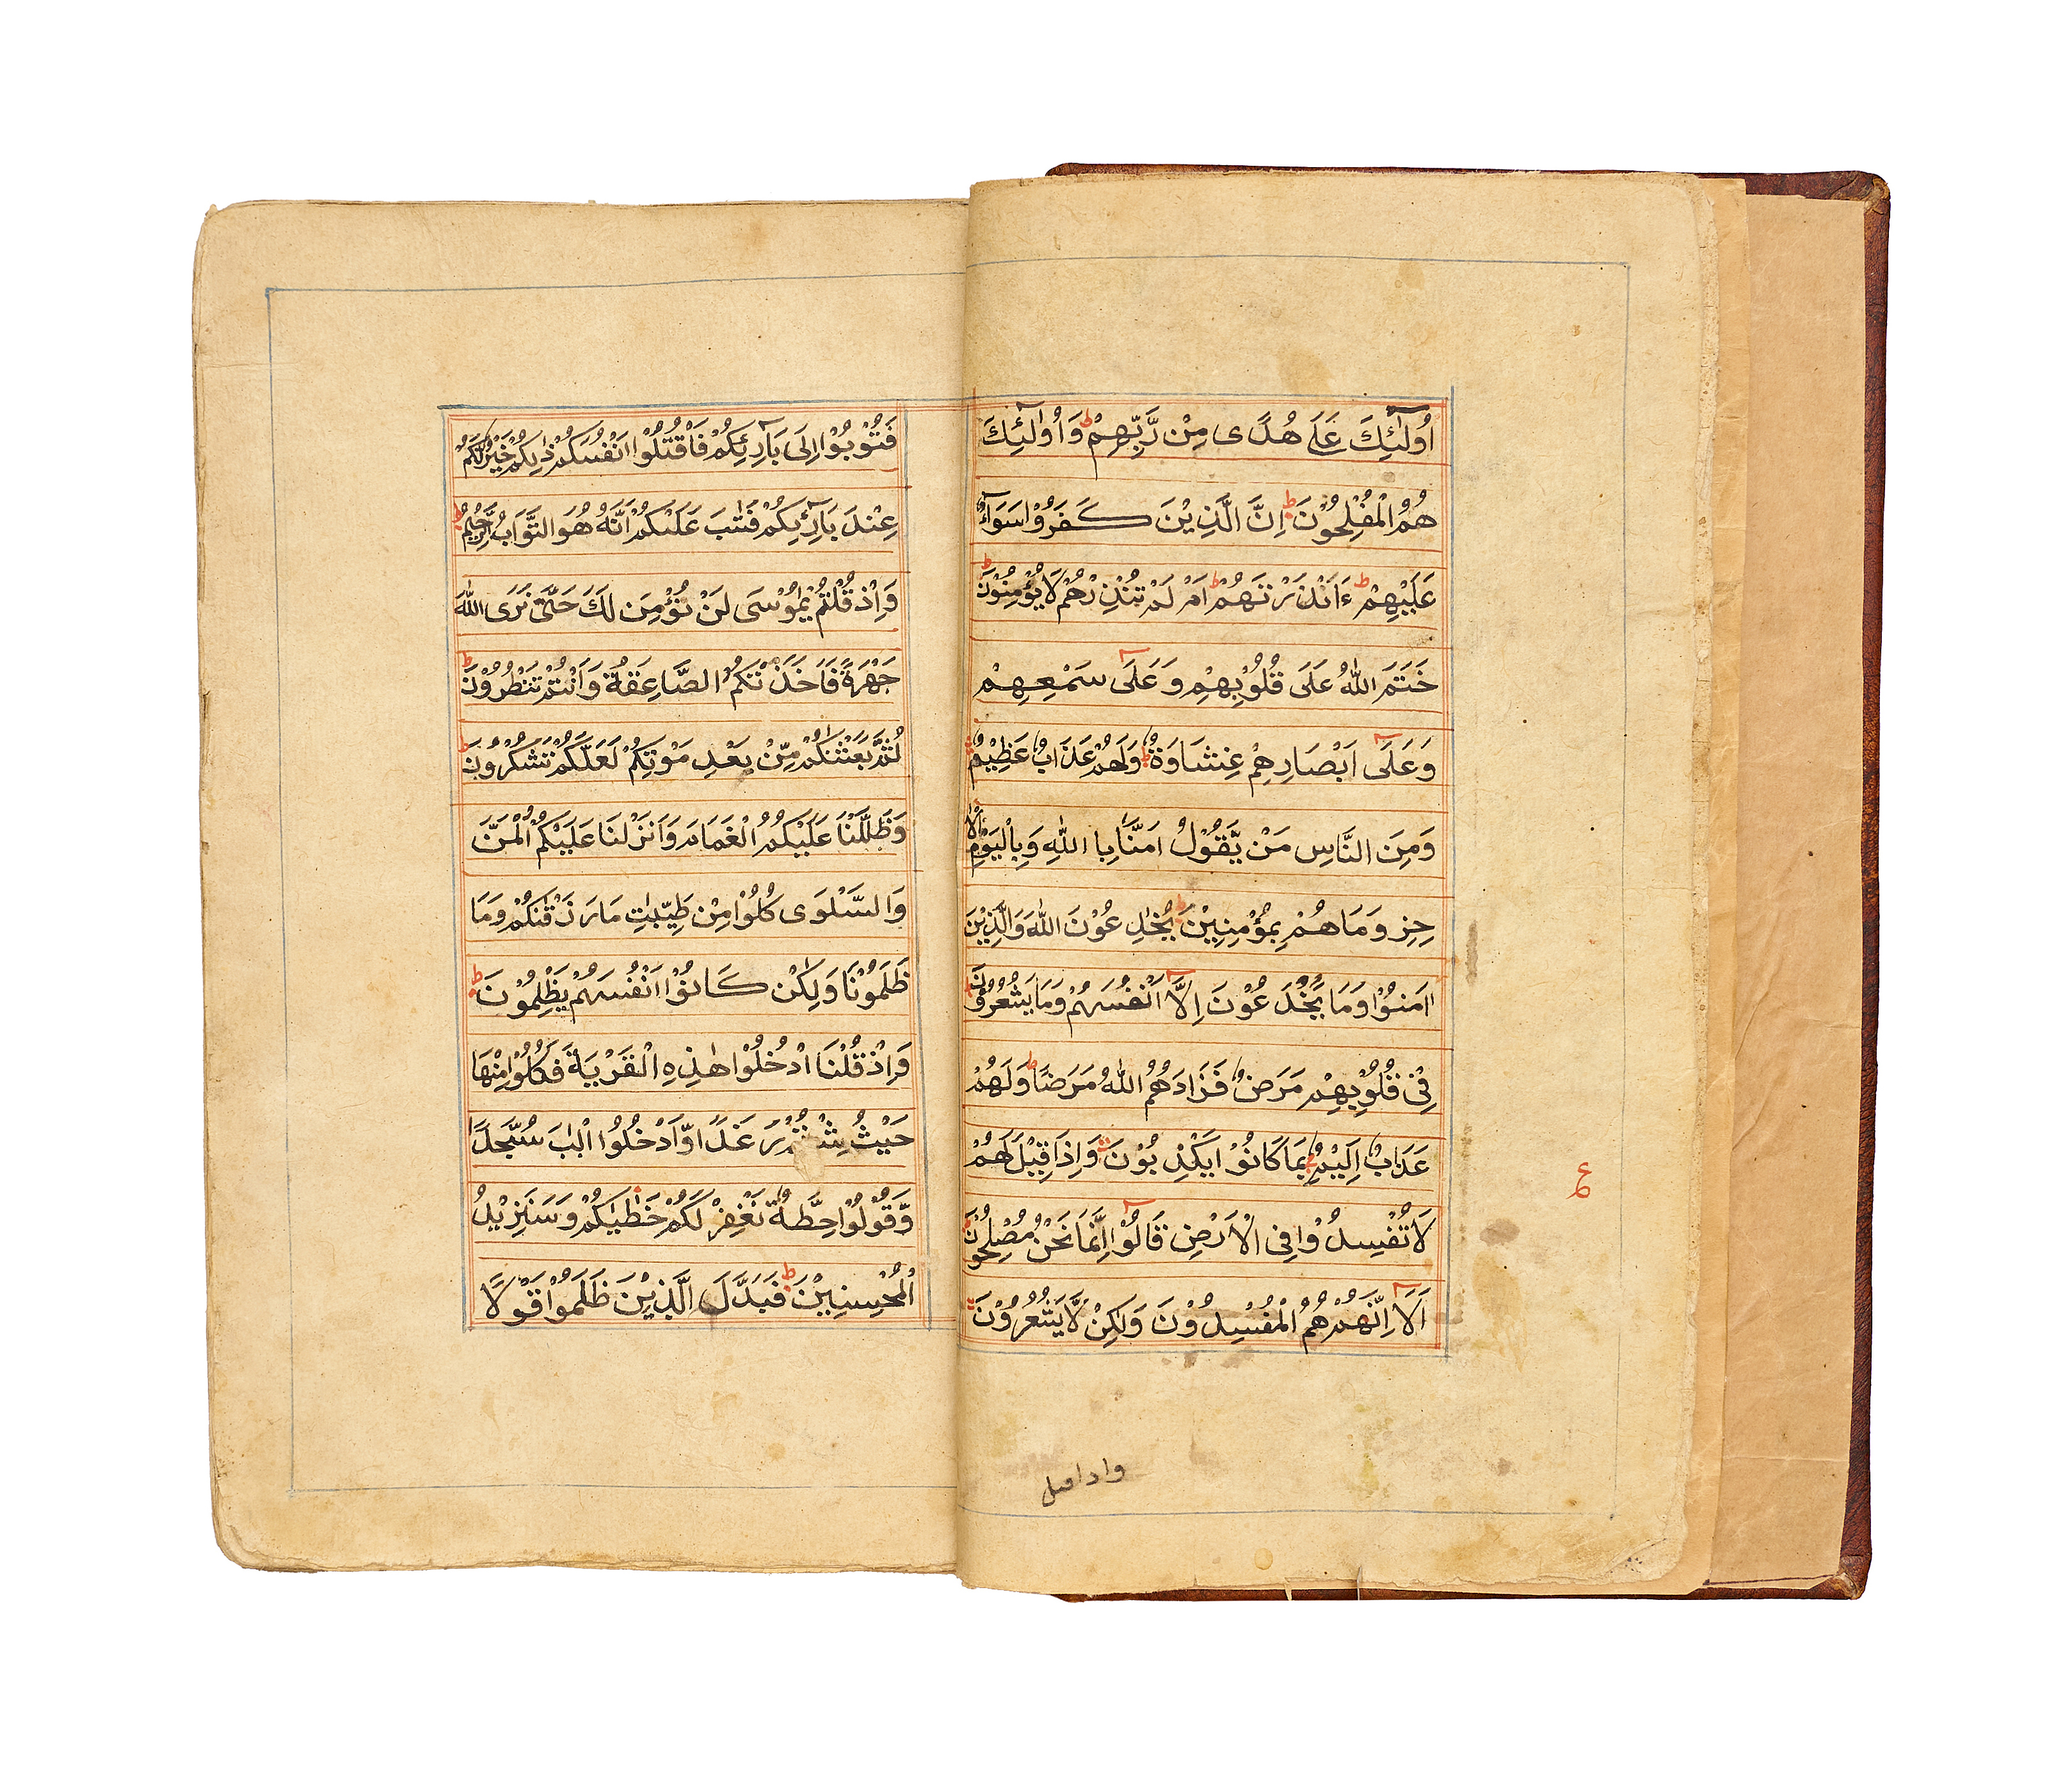 اُولٰٓئِكَ عَلٰى هُدًى مِنْ رَّبِّهِمْ ط وَاُولٰٓئِكَ
هُمُ الْمُفْلِحُوْنَ ط اِنَّ الَّذِيْنَ كَفَرُوْا سَوَآءٌ
عَلَيْهِمْ ط ءَاَنْذَرْتَهُمْ ط اَمْ لَمْ تُنْذِرْهُمْ لَا يُؤْمِنُوْنَ ط
خَتَمَ اللّٰهُ عَلَى قُلُوْبِهِمْ وَعَلَى سَمْعِهِمْ
وَعَلَى اَبْصَارِهِمْ غِشَاوَةٌ وَلَهُمْ عَذَابٌ عَظِيْمٌ
وَمِنَ النَّاسِ مَنْ يَّقُوْلُ اٰمَنَّا بِا اللّٰهِ وَبِالْيَوْمِ الْاٰ
خِرِ وَمَا هُمْ بِمُؤْمِنِيْنَ يُخٰدِعُوْنَ اللّٰهَ وَالَّذِيْنَ
اٰمَنُوْا وَمَا يَخْدَعُوْنَ اِلَّا اَنْفُسَهُمْ وَمَا يَشْعُرُوْنَ
فِيْ قُلُوْبِهِمْ مَرَضٌ فَزَادَهُمُ اللّٰهُ مَرَضًا ط وَلَهُمْ
عَذَابٌ اَلِيْمٌ بِمَا كَانُوْا يَكْذِبُوْنَ وَاِذَا قِيْلَ لَهُمْ
لَا تُفْسِدُوْا فِى الْاَرْضِ قَالُوْا اِنَّمَا نَحْنُ مُصْلِحُوْنَ
اَلَا اِنَّهُمْ هُمُ الْمُفْسِدُوْنَ وَلٰكِنْ لَّا يَشْعُرُوْنَ
واداقيل
ع
فَتُوْبُوْا اِلَى بَارِئِكُمْ فَاقْتُلُوْا اَنْفُسَكُمْ ذٰلِكُمْ خَيْرٌ لَّكُمْ
عِنْدَ بَارِئِكُمْ فَتَابَ عَلَيْكُمْ اِنَّهُ هُوَ التَّوَّابُ الرَّحِيْمُ ط
وَاِذْ قُلْتُمْ يٰمُوْسَى لَنْ نُؤْمِنَ لَكَ حَتّٰى نَرَى اللّٰهَ
جَهْرَةً فَاَخَذَتْكُمُ الصَّاعِقَةُ وَاَنْتُمْ تَنْظُرُوْنَ ط
ثُمَّ بَعَثْنٰكُمْ مِّنْ بَعْدِ مَوْتِكُمْ لَعَلَّكُمْ تَشْكُرُوْنَ ط
وَظَلَّلْنَا عَلَيْكُمُ الْغَمَامَ وَاَنْزَلْنَا عَلَيْكُمُ الْمَنَّ
وَالسَّلْوٰى كُلُوْا مِنْ طَيِّبٰتِ مَا رَزَقْنٰكُمْ وَمَا
ظَلَمُوْنَا وَلٰكِنْ كَانُوْا اَنْفُسَهُمْ يَظْلِمُوْنَ ط
وَاِذْ قُلْنَا ادْخُلُوْا هٰذِهِ الْقَرْيَةَ فَكُلُوْا مِنْهَا
حَيْثُ شِئْتُمْ رَغَدًا وَّادْخُلُوا الْبٰبَ سُجَّدًا
وَّقُوْلُوْا حِطَّةٌ نَغْفِرْ لَكُمْ خَطٰيٰكُمْ وَسَنَزِيْدُ
الْمُحْسِنِيْنَ ط فَبَدَّلَ الَّذِيْنَ ظَلَمُوْا قَوْلًا